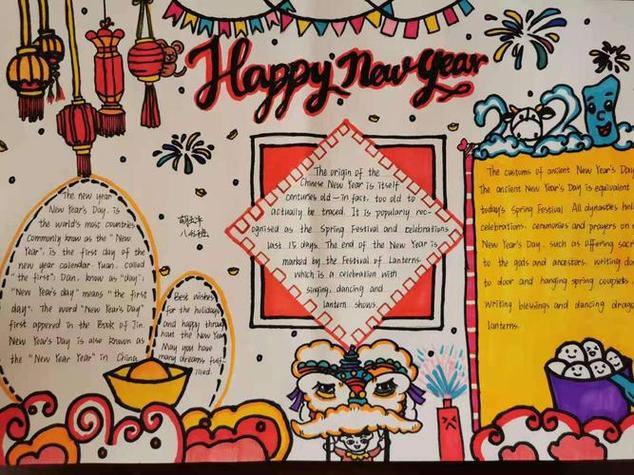 Happy New Year
2021
The new year
New Year's Day, is
the world's most countries
commonly know as the "New
Year", is the first day of the
new year calendar Yuan, called
"the first"; Dan, know as "day";
"New Year's day" means "the first
day". The word "New Year's Day"
first appered in the Book of Jin.
New Year's Day is also known as
the "New Year Year" in China.
Best wishes
for the holidays
and happy through
out the New Year
May you have
many dreams fulf-
illed.
The origin of the
Chinese New Year is itself
centuries old - in fact, too old to
actually be traced. It is popularly rec-
ognised as the Spring Festival and celebrations
last 15 days. The end of the New Year is
marked by the Festival of Lanterns,
which is a celebration with
singing, dancing and
lantern shows.
The customs of ancient New Year's Day
The ancient New Year's Day is equivalent
today's Spring Festival. All dynasties hel
celebrations, ceremonies and prayers on
New Year's Day, such as offering sacr
to the gods and ancestors, writing do
to door and hanging spring couplets
writing blessings and dancing drago
lanterns.